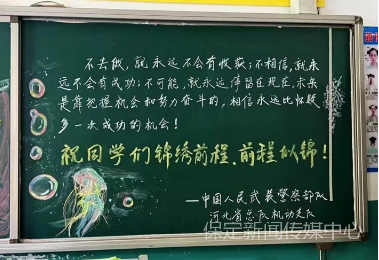 不去做，就永远不会有收获；不相信，就永
远不会有成功；不可能，就永远停留在现在，未来
是靠把握机会和努力奋斗的，相信永远比怀疑
多一次成功的机会！
祝同学们锦绣前程，前程似锦！
——中国人民武装警察部队
河北省总队机动支队
保定新闻传媒中心